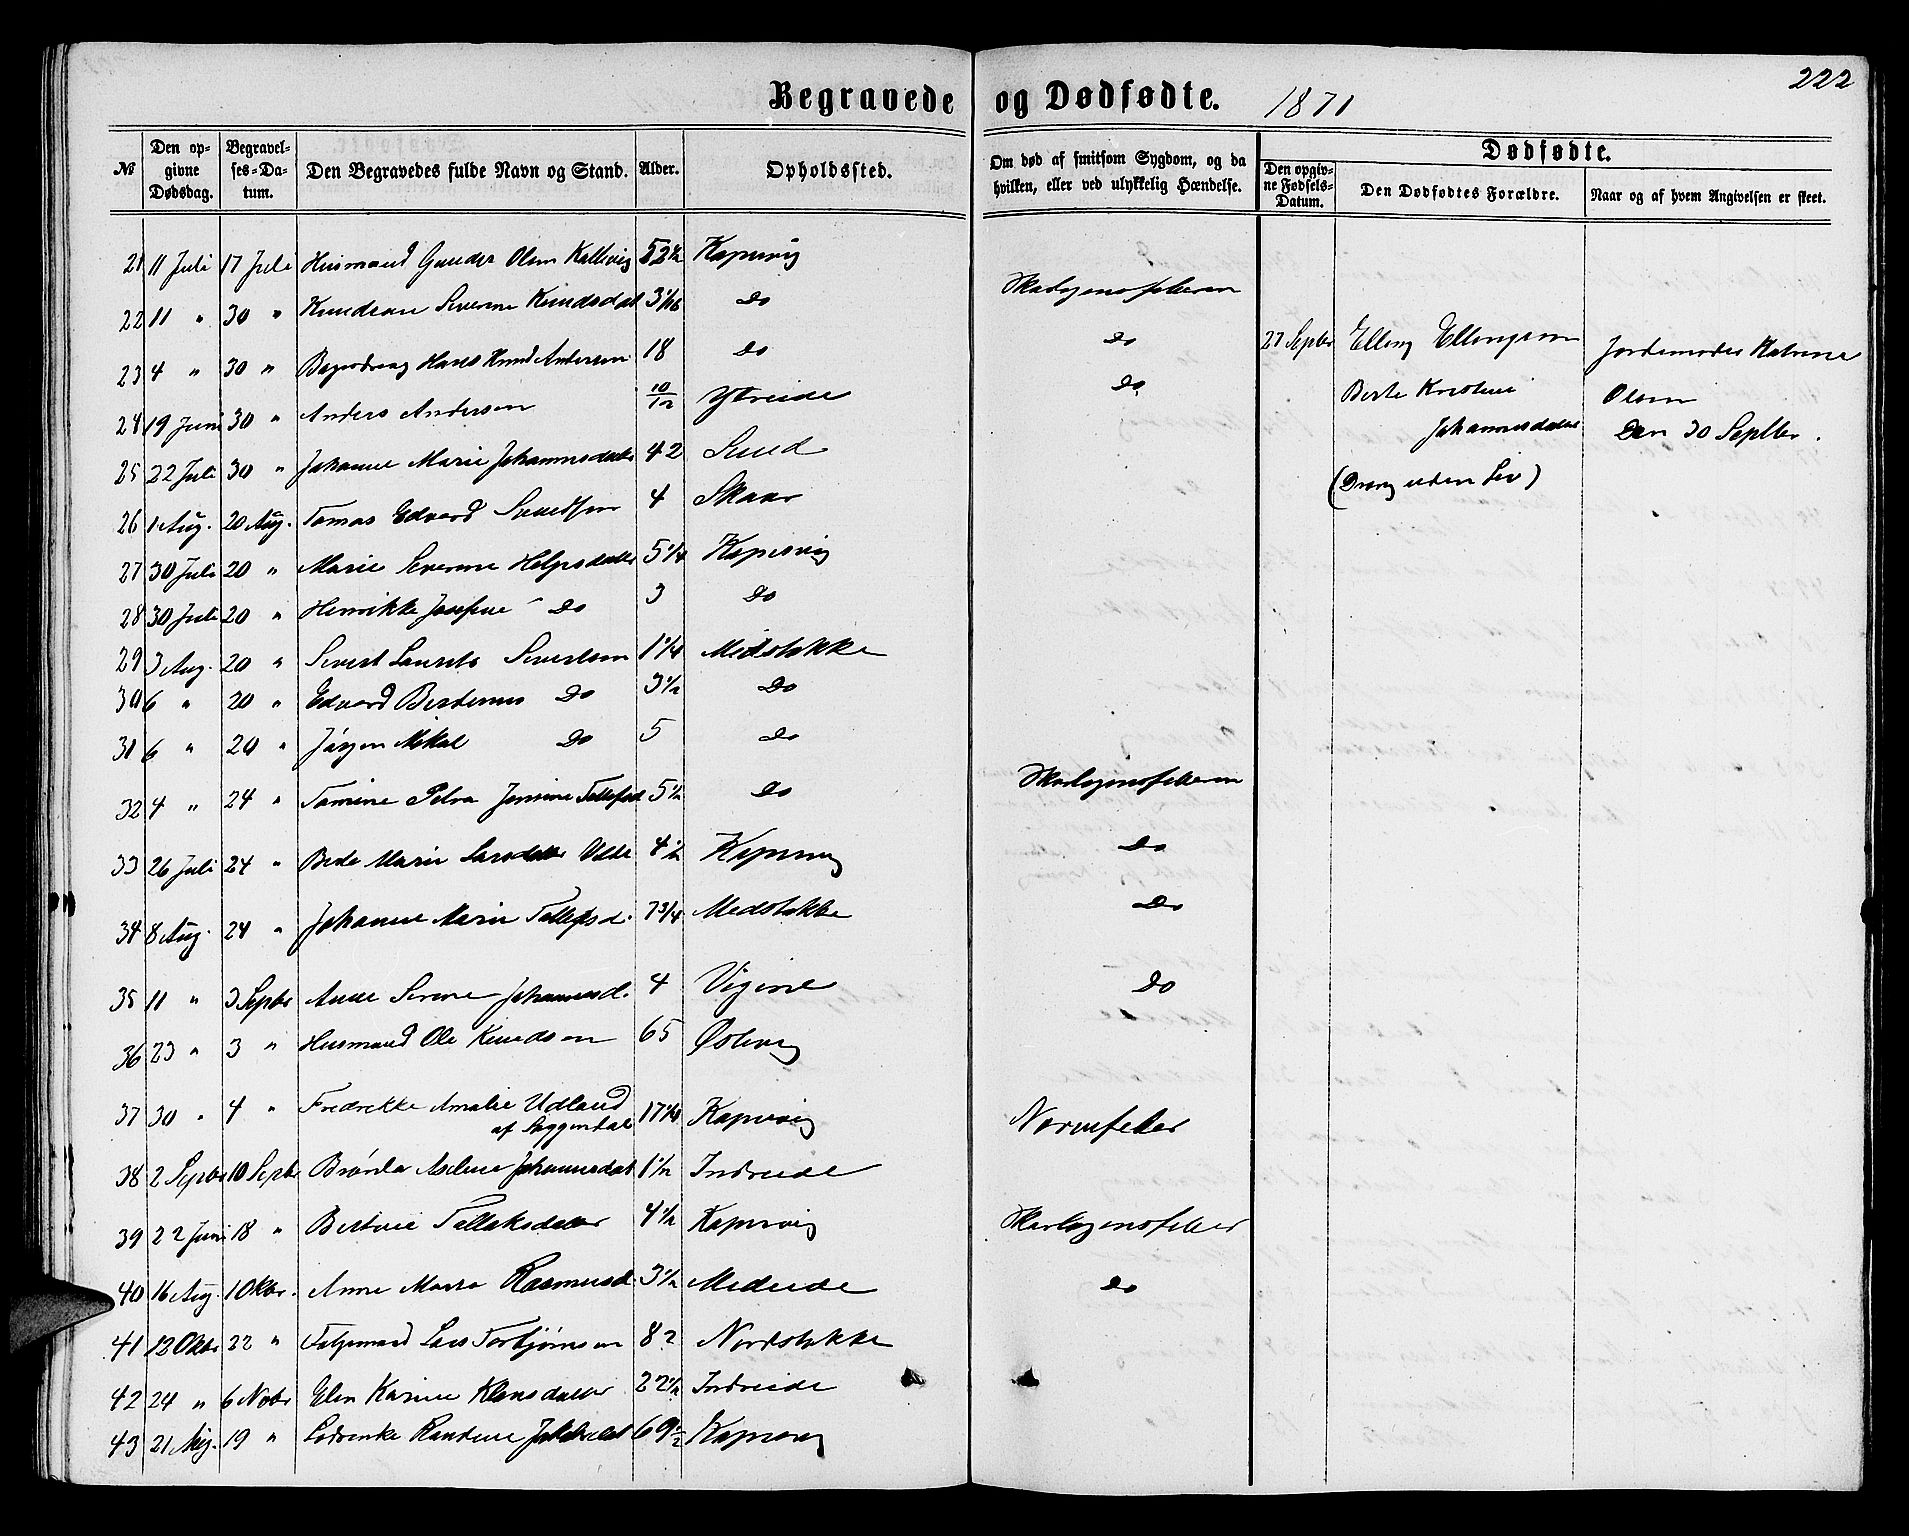 222
Begravede og Dødfødte. 1871
№ Den opgivne Dødsdag. Begravelses-Datum. Den Begravedes fulde Navn og Stand. Alder. Opholdssted. Om død af smitsom Sygdom, og da hvilken, eller ved ulykkelig Hændelse. Dødfødte. Den opgivne Fødsels-Datum. Den Dødfødtes Forældre. Naar og af hvem Angivelsen er skeet.
21 11 Juli 17 Juli Husmand Gunder Olsen Kallevig 52 1/2 Kapervig
22 11 " 30 " Knudsine Severine Knudsdat 3 1/16 Do Skarlagensfeberen
23 4 " 30 " Bagerdreng Hans Knud Andersen 18 Do Do 27 Septbr Elling Ellingsen Jordemoder Katrine
24 19 Juni 30 " Anders Andersen 10/12 Ytreide Do Berte Kristine Olsen
Johannesdatter Den 30 Septbr.
25 22 Juli 30 " Johanne Marie Johannesdatter 42 Sund
(Dreng uden Liv)
26 1 Aug. 20 Aug. Tomas Edvard Svendsen 4 Skaar
27 30 Juli 20 " Marie Severine Helgesdatter 5 1/4 Kapervig
28 30 Juli 20 " Henrikke Josefine Do 3 Do
29 3 Aug. 20 " Sivert Laurits Sivertsen 1 1/4 Midstokke
30 6 " 20 " Edvard Bertinus Do 3 1/2 Do
31 6 " 20 " Jørgen Mikal Do 5 Do
32 4 " 24 " Tomine Petra Jensine Tollefsd 5 1/2 Do Skarlagensfeberen
33 26 Juli 24 " Berte Marie Larsdatter 4 1/2 Kapervig Do
34 8 Aug. 24 " Johanne Marie Tollefsd. 7 3/4 Medstokke Do
35 11 " 3 Septbr Anne Serine Johannesd. 4 Do
36 23 " 3 " Husmand Ole Knudsen 65 Østevig
37 30 " 4 " Fredrekke Amalie Udland 17 1/4 Kapervig Nervefeber
af Soggendal
38 2 Septbr 10 Septbr Aslene Johannesdat 1 1/2 Indreide
39 22 Juni 18 " Bertine Tollaksdatter 4 1/2 Kapervig Skarlagensfeber
40 16 Aug. 1 Oktbr. Anne Marta Rasmusd. 3 1/2 Medeide Do
41 12 Oktbr 22 " Lars Torbjørnsen 82 Nordstokke
42 24 " 6 Novbr Elen Karine Klausdatter 22 1/2 Indreide
43 21 Aug. 19 " Randine 69 1/2 Kapervig